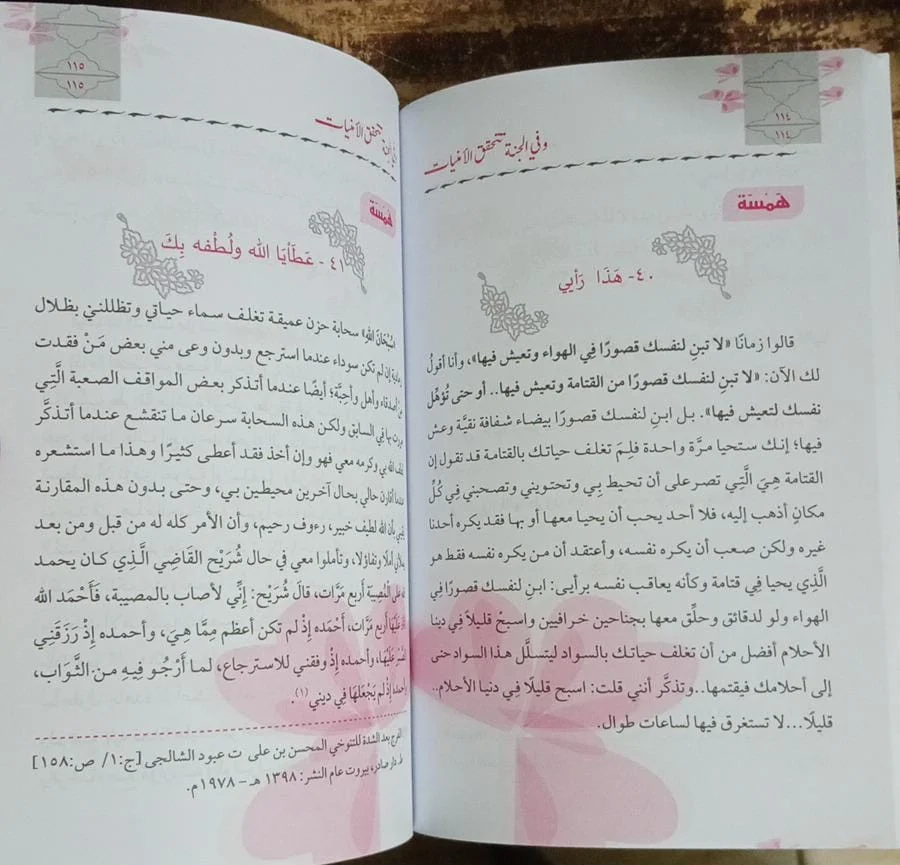 ١١٤
١١٤
وفي الجنة تتحقق الأمنيات
هَمْسَة
٤٠- هَذَا رَأيي
قالوا زمانًا «لا تبنِ لنفسك قصورًا فِي الهواء وتعيش فيها»، وأنا أقولُ
لك الآن: «لا تبنِ لنفسك قصورًا من القتامة وتعيش فيها.. أو حتى تُؤهِّل
نفسك لتعيش فيها». بل ابنِ لنفسك قصورًا بيضاء شفافة نقيَّة وعش
فيها؛ إنك ستحيا مرَّة واحدة فلِمَ تغلف حياتك بالقتامة قد تقول إن
القتامة هِيَ الَّتِي تصر على أن تحيط بِي وتحتويني وتصحبني فِي كُلِّ
مكانٍ أذهب إليه، فلا أحد يحب أن يحيا معها أو بها فقد يكره أحدنا
غيره ولكن صعب أن يكره نفسه، وأعتقد أن من يكره نفسه فقط هو
الَّذي يحيا فِي قتامة وكأنه يعاقب نفسه برأيى: ابنِ لنفسك قصورًا فِي
الهواء ولو لدقائق وحلِّق معها بجناحين خرافيين واسبحْ قليلًا فِي دينا
الأحلام أفضل من أن تغلف حياتك بالسواد ليتسلَّل هذا السواد حتى
إلى أحلامك فيقتمها..وتذكَّر أنني قلت: اسبح قليلًا فِي دنيا الأحلام..
قليلًا...لا تستغرق فيها لساعات طوال.
١١٥
١١٥
تتحقق الأمنيات
هَمْسَة
٤١- عَطَايَا الله ولُطْفه بِكَ
سُبْحَانَ الله» سحابة حزن عميقة تغلف سماء حياتي وتظللني بظلال
إن لم تكن سوداء عندما استرجع وبدون وعى مني بعض مَنْ فقدت
أصدقاء وأهل وأحِبَّة؛ أيضًا عندما أتذكر بعض المواقف الصعبة الَّتِي
بها في السابق ولكن هذه السحابة سرعان ما تنقشع عندما أتذكَّر
الله بي وكرمه معي فهو وإن أخذ فقد أعطى كثيرًا وهذا ما استشعره
عندما أقارن حالي بحال آخرين محيطين بي، وحتى بدون هذه المقارنة
بأن الله لطيف خبير، رءوف رحيم، وأن الأمر كله له من قبل ومن بعد
أملًا وتفاؤلا، وتأملوا معي في حال شُرَيْح القَاضِي الَّذي كان يحمد
على المُصِيبَة أربع مَرَّات، قالَ شُرَيْح: إنِّي لأصاب بالمصيبة، فَأَحْمَد الله
عَلَيْهَا أربع مَرَّات، أَحْمَده إذْ لم تكن أعظم مِمَّا هِيَ، وأحمده إذْ رَزَقَنِي
عَلَيْهَا، وأحمده إذْ وفقني للاسترجاع، لما أَرْجُو فِيهِ من الثَّوَاب،
وأحمده إذْ لم يَجْعَلهَا فِي ديني (١).
الفرج بعد الشدة للتنوخي المحسن بن على ت عبود الشالجى [ج:١/ ص:١٥٨]
ط دار صادر، بيروت عام النشر: ١٣٩٨ هـ - ١٩٧٨م.